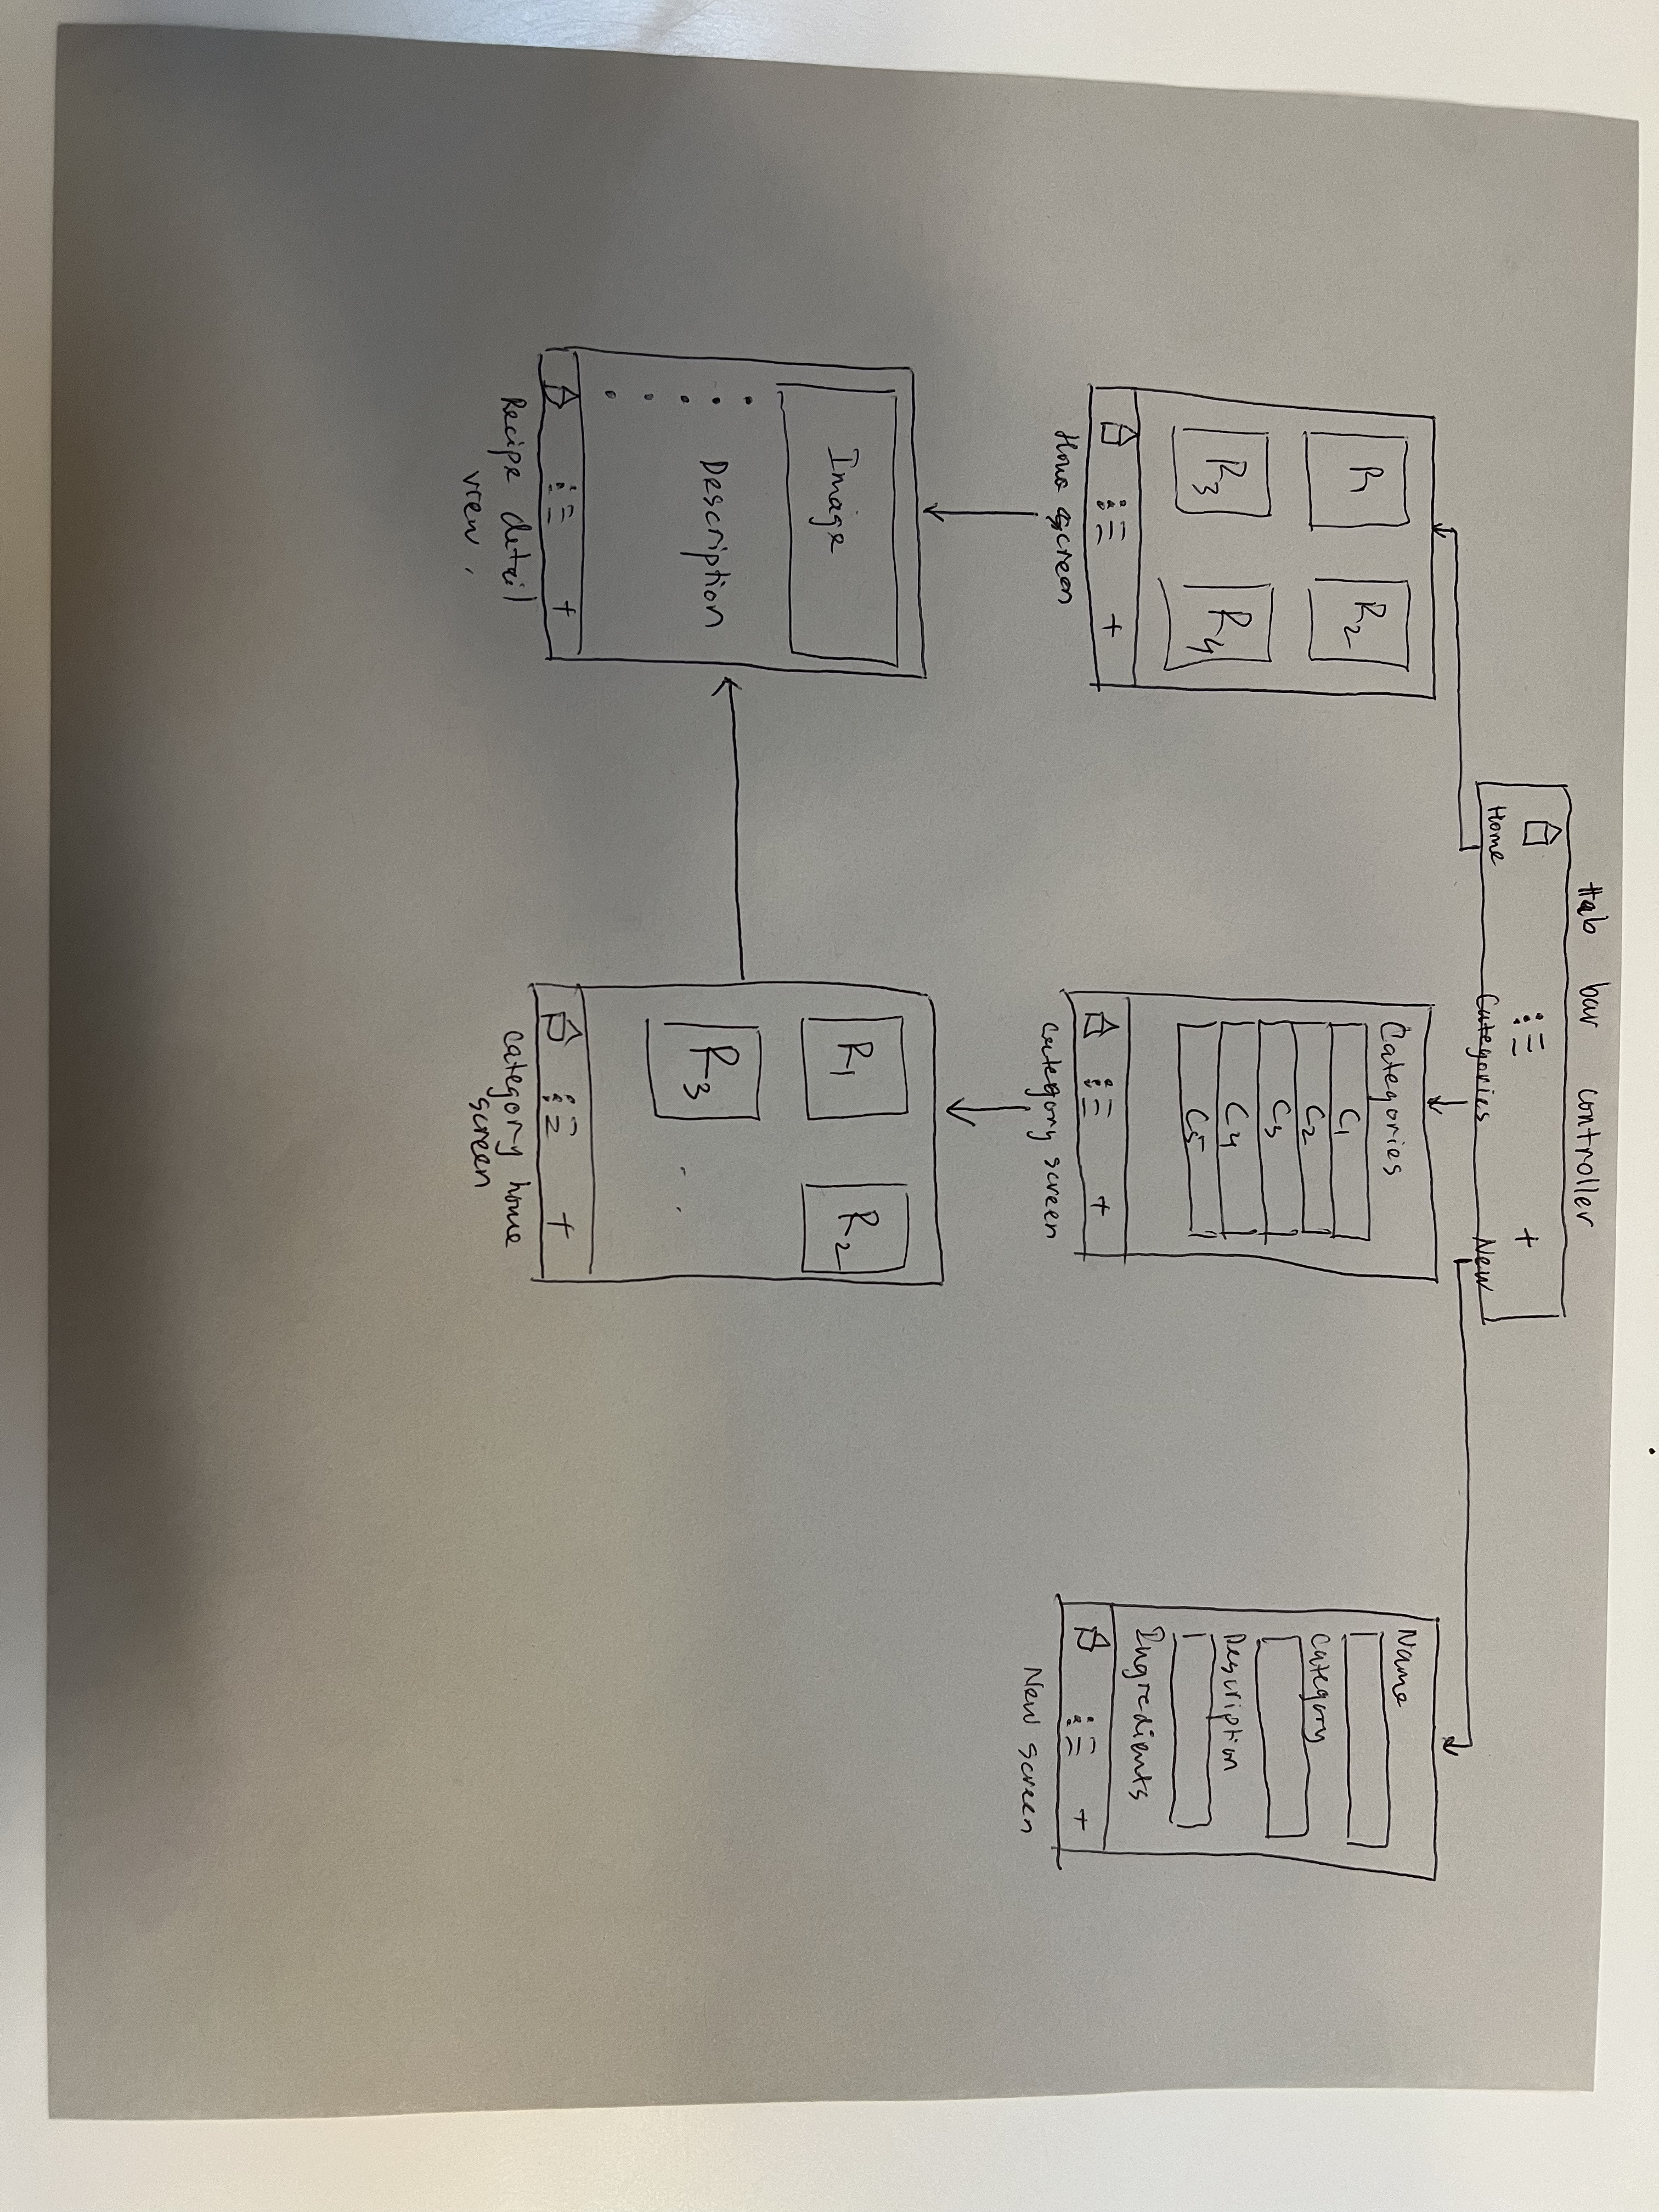 tab bar controller
Home
Categories
New
R1
R2
R3
R4
Home screen
Categories
C1
C2
C3
C4
C5
category screen
Name
Category
Description
Ingredients
New screen
Image
Description
Recipe detail
view.
R1
R2
R3
category home
screen